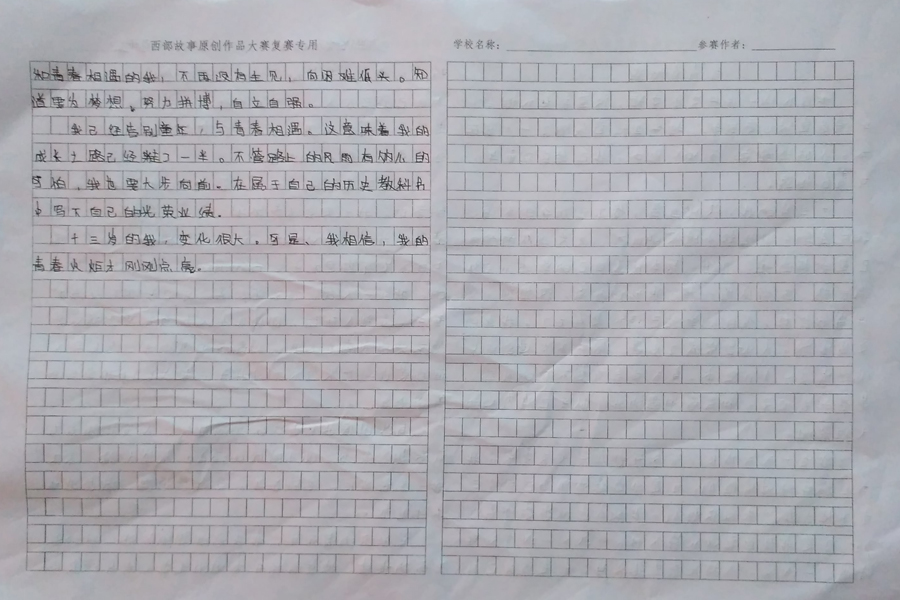 西部故事原创作品大赛复赛专用
学校名称：
参赛作者：
和青春相遇的我，不再没有主见，向困难低头。知
道要为梦想，努力拼搏，自立自强。
我已经告别童年，与青春相遇。这意味着我的
成长之路已经走了一半。不管路上的风雨有的
可怕，我也要大步向前。在属于自己的历史教科书
上写下自己的光荣业绩。
十三岁的我，变化很大。可是、我相信，我的
青春火炬才刚刚点亮。